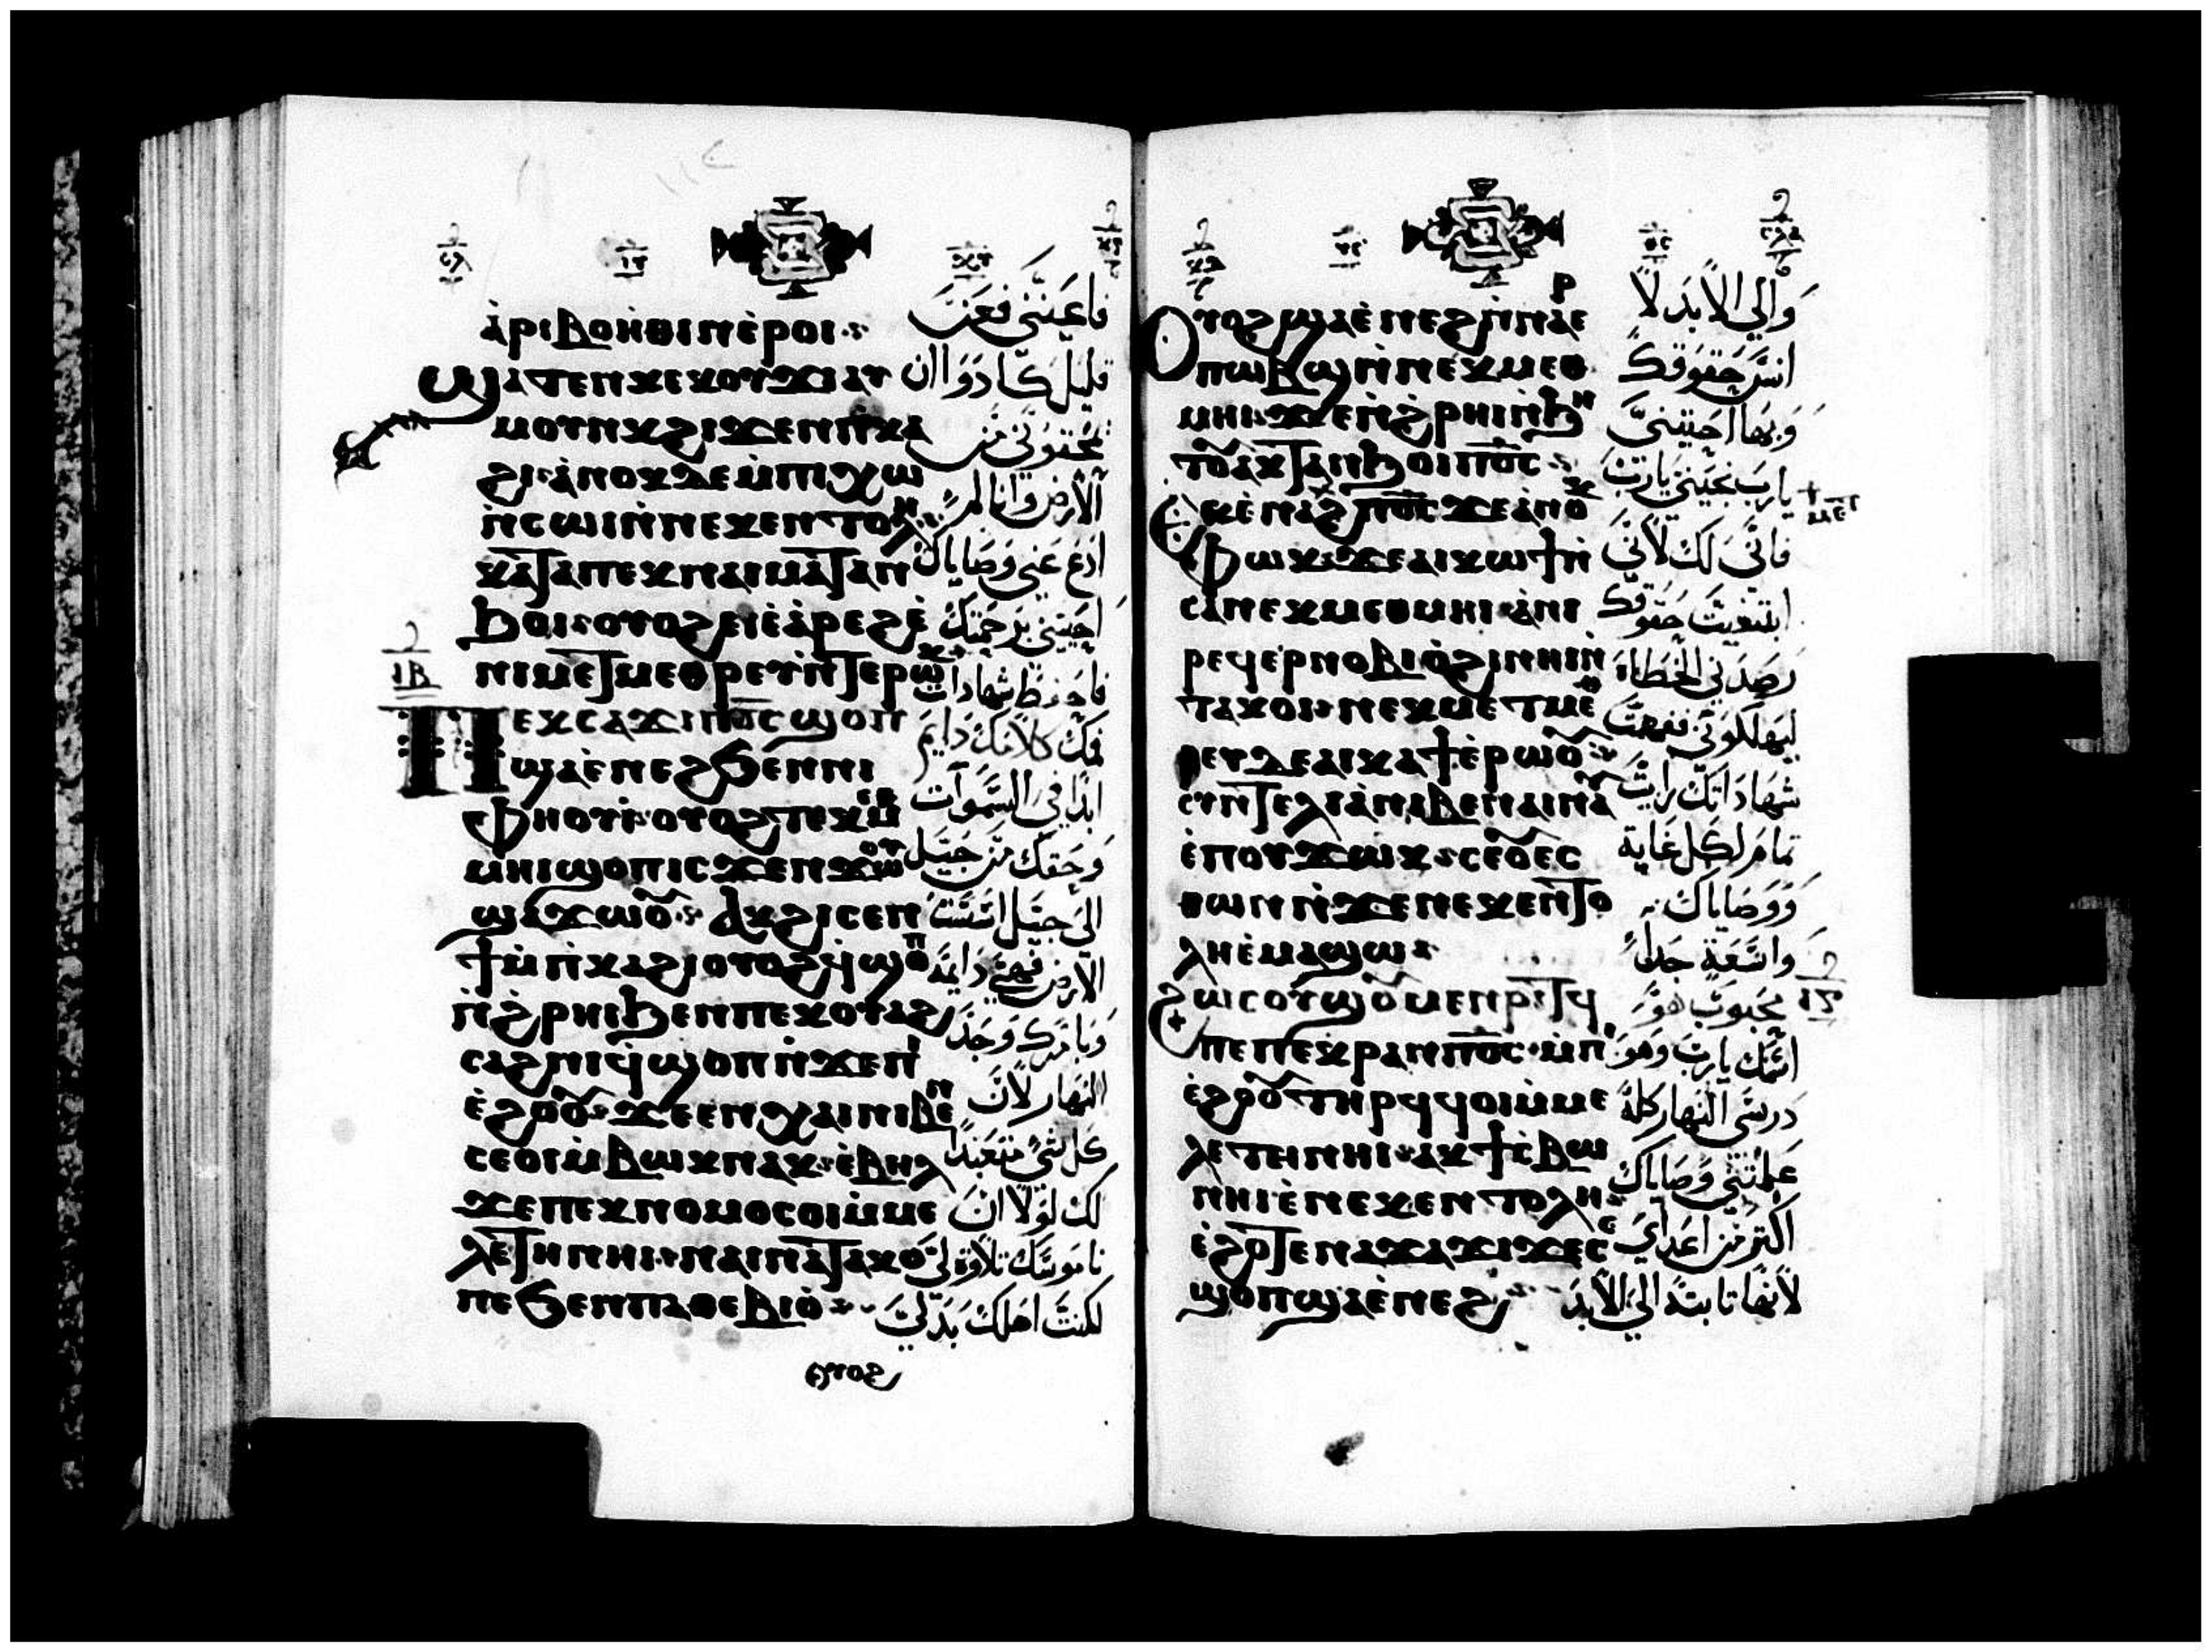 ⲁ̀ⲣⲓⲃⲟⲏ̀ⲑⲓⲛ ⲉ̀ⲣⲟⲓ
ϣⲁⲧⲉⲛ ⲕⲉⲕⲟⲩϫⲓ ⲁⲩ
ⲙⲟⲩⲛⲕ ϩⲓϫⲉⲛ ⲡⲓⲕⲁ
ϩⲓ ⲁ̀ⲛⲟⲕ ⲇⲉ ⲙ̀ⲡⲓⲭⲱ
ⲛ̀ⲥⲱⲓ ⲛ̀ⲛⲉⲕⲉⲛⲧⲟⲗⲏ
ⲕⲁⲧⲁ ⲡⲉⲕⲛⲁⲓ ⲙⲁⲧⲁⲛ
ⲃⲟⲓ ⲟⲩⲟϩ ⲉⲓⲉ̀ⲁ̀ⲣⲉϩ ⲉ̀
ⲛⲓⲙⲉⲧⲙⲉⲑⲣⲉⲩ ⲛ̀ⲧⲉ ⲣⲱⲕ
ⲓⲃ
ⲡⲉⲕⲥⲁϫⲓ ⲡ⳪ ϣⲟⲡ
ϣⲁ ⲉ̀ⲛⲉϩ ϧⲉⲛ ⲛⲓ
ⲫⲏⲟⲩⲓ̀ ⲟⲩⲟϩ ⲧⲉⲕⲙⲉⲑ
ⲙⲏⲓ ϣⲟⲡ ⲓⲥϫⲉⲛ ϫⲱⲟⲩ
ϣⲁ ϫⲱⲟⲩ ⲁⲕϩⲓⲥⲉⲛ
ϯ ⲙ̀ⲡⲕⲁϩⲓ ⲟⲩⲟϩ ϥ̀ϣⲟⲡ
ⲛ̀ϩ̀ⲣⲏⲓ ϧⲉⲛ ⲡⲉⲕⲟⲩⲁϩ
ⲥⲁϩⲛⲓ ϥ̀ϣⲟⲡ ⲛ̀ϫⲉ ⲡⲓ
ⲉ̀ϩⲟⲟⲩ ϫⲉ ⲉⲛⲭⲁⲓ ⲛⲓⲃⲉⲛ
ⲥⲉⲟⲓ ⲙ̀ⲃⲱⲕ ⲛⲁⲕ ⲉ̀ⲃⲏⲗ
ϫⲉ ⲡⲉⲕⲛⲟⲙⲟⲥ ⲟⲓ ⲙ̀ⲙⲉ
ⲗⲉⲧⲏ ⲛⲏⲓ ⲛⲁⲓⲛⲁⲧⲁⲕⲟ
ⲡⲉ ϧⲉⲛ ⲡⲁⲑⲉⲃⲓⲟ̀
ⲟⲩⲟϩ
فاعنّي فعن
قليل كادوا ان
يفنوني من
الارض وانا لم
ادع عني وصاياك
احيني برحمتك
فاحفظ شهادات
فمك كلامك دايم
ابدا في السموات
وحقك من جيل
الى جيل اسست
الارض فهي دايمة
وبامرك وجد
النهار لان
كل شي متعبد
لك لولا ان
ناموسك تلاوة لي
لكنت اهلك بذلي
ⲟⲩⲟϩ ϣⲁ ⲉ̀ⲛⲉϩ ⲛ̀ⲛⲁⲉⲣ
ⲡⲱⲃϣ ⲛ̀ⲛⲉⲕⲙⲉⲑ
ⲙⲏⲓ ϫⲉ ⲛ̀ϩ̀ⲣⲏⲓ ⲛ̀ϧⲏ
ⲧⲟⲩ ⲁⲕⲧⲁⲛϧⲟⲓ ⲡ⳪
ⲉ̀ⲛⲁϩⲙ ⲡ⳪ ϫⲉ ⲁ̀ⲛⲟⲕ
ⲫⲱⲕ ϫⲉ ⲁⲓⲕⲱϯ ⲛ̀
ⲥⲁ ⲛⲉⲕⲙⲉⲑⲙⲏⲓ ⲁ̀ⲛⲓ
ⲣⲉϥⲉⲣⲛⲟⲃⲓ ⲟ̀ϩⲓ ⲛⲏⲓ ⲛ̀
ⲧⲁⲕⲟⲓ ⲛⲉⲕⲙⲉⲧⲙⲉⲑ
ⲣⲉⲩ ⲇⲉ ⲁⲓⲕⲁϯ ⲉ̀ⲣⲱⲟⲩ
ⲥⲩⲛⲧⲉⲗⲓⲁ̀ ⲛⲓⲃⲉⲛ ⲁⲓⲛⲁⲩ
ⲉ̀ⲡⲟⲩϫⲱⲕ ⲥⲉⲟⲩⲉⲥ
ⲑⲱⲛ ⲛ̀ϫⲉ ⲛⲉⲕⲉⲛⲧⲟ
ⲗⲏ ⲉ̀ⲙⲁϣⲱ
ϩⲱⲥ ⲟⲩϣⲟⲩⲙⲉⲛⲣⲓⲧϥ
ⲡⲉ ⲡⲉⲕⲣⲁⲛ ⲡ⳪ ⲙ̀ⲡⲓ
ⲉ̀ϩⲟⲟⲩ ⲧⲏⲣϥ ϥⲟⲓ ⲙ̀ⲙⲉ
ⲗⲉⲧⲏ ⲛⲏⲓ ⲁⲕϯⲥ̀ⲃⲱ
ⲛⲏⲓ ⲉ̀ⲛⲉⲕⲉⲛⲧⲟⲗⲏ
ⲉ̀ϩⲟⲧⲉ ⲛⲁϫⲁϫⲓ ϫⲉ ⲥⲉ
ϣⲟⲡ ϣⲁ ⲉ̀ⲛⲉϩ
والي الابد لا
انسي حقوقك
وبها احييتني
يارب نجيني يارب
فاني لك لاني
ابتغيت حقوقك
رصدني الخطاة
ليهلكوني ففهمت
شهاداتك رايت
تمام لكل غاية
ووصاياك
واسعة جدا
ⲓⲅ
محبوب هو
اسمك يارب وهو
درسي النهار كله
علمتني وصاياك
اكتر من اعداي
لانها تابته الي الابد